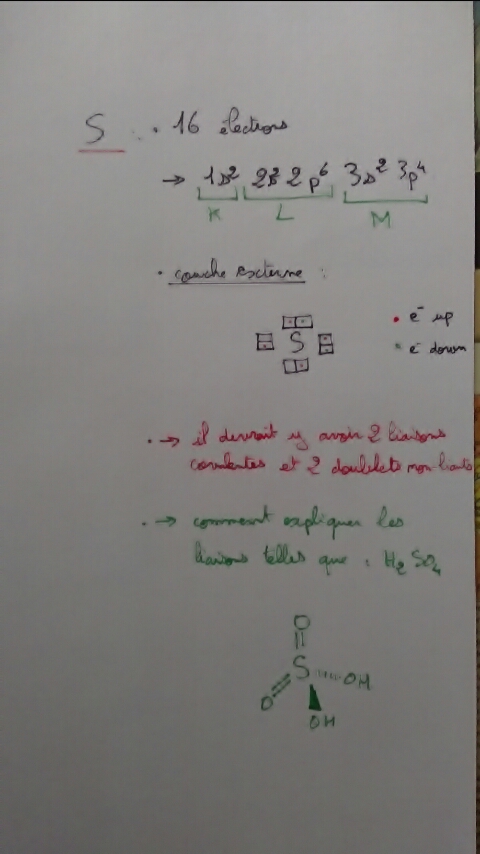 S : • 16 électrons
→ 1s² 2s² 2p⁶ 3s² 3p⁴
K L M
• couche externe :
S
• e⁻ up
• e⁻ down
• → il devrait y avoir 2 liaisons
covalentes et 2 doublets non-liants
• → comment expliquer les
liaisons telles que : H₂SO₄
O
S OH
O
OH